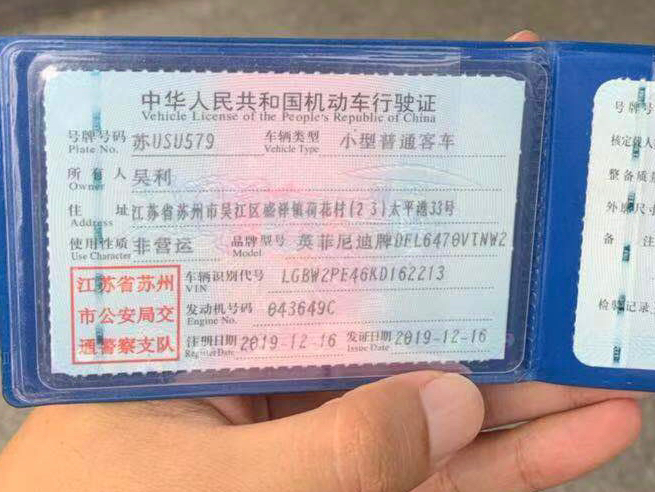 中华人民共和国机动车行驶证
Vehicle License of the People's Republic of China
号牌号码 苏USU579 车辆类型 小型普通客车
Plate No. Vehicle Type
所有人 吴利
Owner
住址 江苏省苏州市吴江区盛泽镇荷花村(23)太平港33号
Address
使用性质 非营运 品牌型号 英菲尼迪牌DFL6470VTNW2
Use Character Model
江苏省苏州
市公安局交
通警察支队
车辆识别代号 LGBW2PE46KD162213
VIN
发动机号码 043649C
Engine No.
注册日期 2019-12-16 发证日期 2019-12-16
Register Date Issue Date
号牌号
核定载人
整备质
外廓尺
备注
检验记录